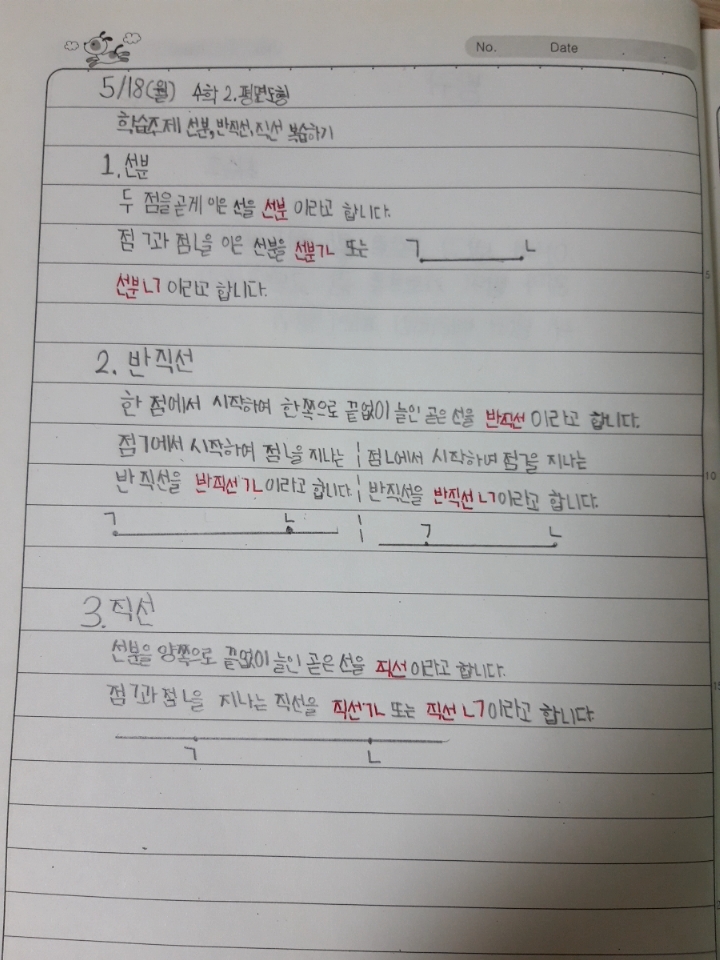 No. Date
5/18(월) 수학 2. 평면도형
학습주제 선분, 반직선, 직선 복습하기
1. 선분
두 점을 곧게 이은 선을 선분 이라고 합니다.
점 ㄱ과 점ㄴ을 이은 선분을 선분ㄱㄴ 또는 ㄱ ㄴ
선분ㄴㄱ 이라고 합니다.
5
2. 반직선
한 점에서 시작하여 한쪽으로 끝없이 늘인 곧은 선을 반직선 이라고 합니다.
점ㄱ에서 시작하여 점ㄴ을 지나는 점ㄴ에서 시작하여 점ㄱ을 지나는
10
반직선을 반직선 ㄱㄴ이라고 합니다 반직선을 반직선 ㄴㄱ이라고 합니다.
ㄱ ㄴ ㄱ ㄴ
3. 직선
선분을 양쪽으로 끝없이 늘인 곧은 선을 직선이라고 합니다.
15
점ㄱ과 점ㄴ을 지나는 직선을 직선ㄱㄴ 또는 직선 ㄴㄱ이라고 합니다
ㄱ ㄴ